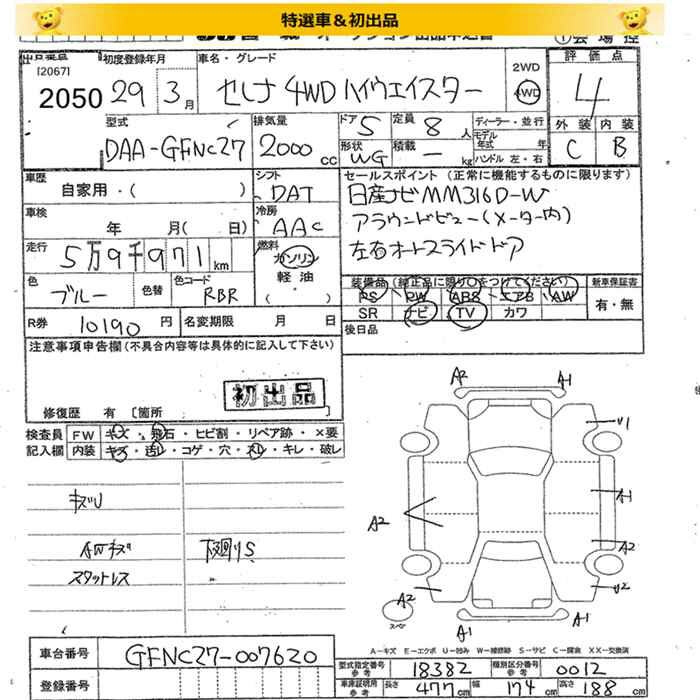 特選車&初出品
初度登録年月 車名・グレード 2WD 4WD 評価点
[2067]
2050 29年 3月 セレナ 4WD ハイウエイスター 4
型式 排気量 ドア 5 定員 8人 ディーラー・並行 外装 内装
DAA-GFNC27 2000cc 形状 WG 積載 - kg モデル年式 年式 ハンドル 左・右 C B
車歴 シフト セールスポイント(正常に機能するものに限ります)
自家用・( ) DAT 日産ナビMM316D-W
車検 冷房 アラウンドビュー(メーター内)
年 月(日) AAC 左右オートスライドドア
走行 燃料
5万9千971km ガソリン 軽油 ・( )
色 色替 色コード 装備品(純正品に限り○をつけてください) 新車保証書
ブルー RBR PS PW ABS エアB AW 有・無
SR ナビ TV カワ
R券 10190円 名変期限 月 日 後日品
注意事項申告欄(不具合内容等は具体的に記入して下さい)
初出品
修復歴 有 [箇所 ]
検査員 FW キズ・飛石・ヒビ割・リペア跡・×要
記入欄 内装 キズ・汚レ・コゲ・穴・スレ・キレ・破レ
キズU
AWキズ 下廻りS
スタットレス
A2 A1
U1
A1
A2 A2
A2 U2
スペア
A1 A1
A-キズ E-エクボ U-凹み W-補修跡 S-サビ C-腐食 XX-交換済
車台番号 GFNC27-007620
登録番号
型式指定番号 参考 18382 類別区分番号 参考 0012
車庫証明用 参考 長さ 477cm 幅 174cm 高さ 188cm